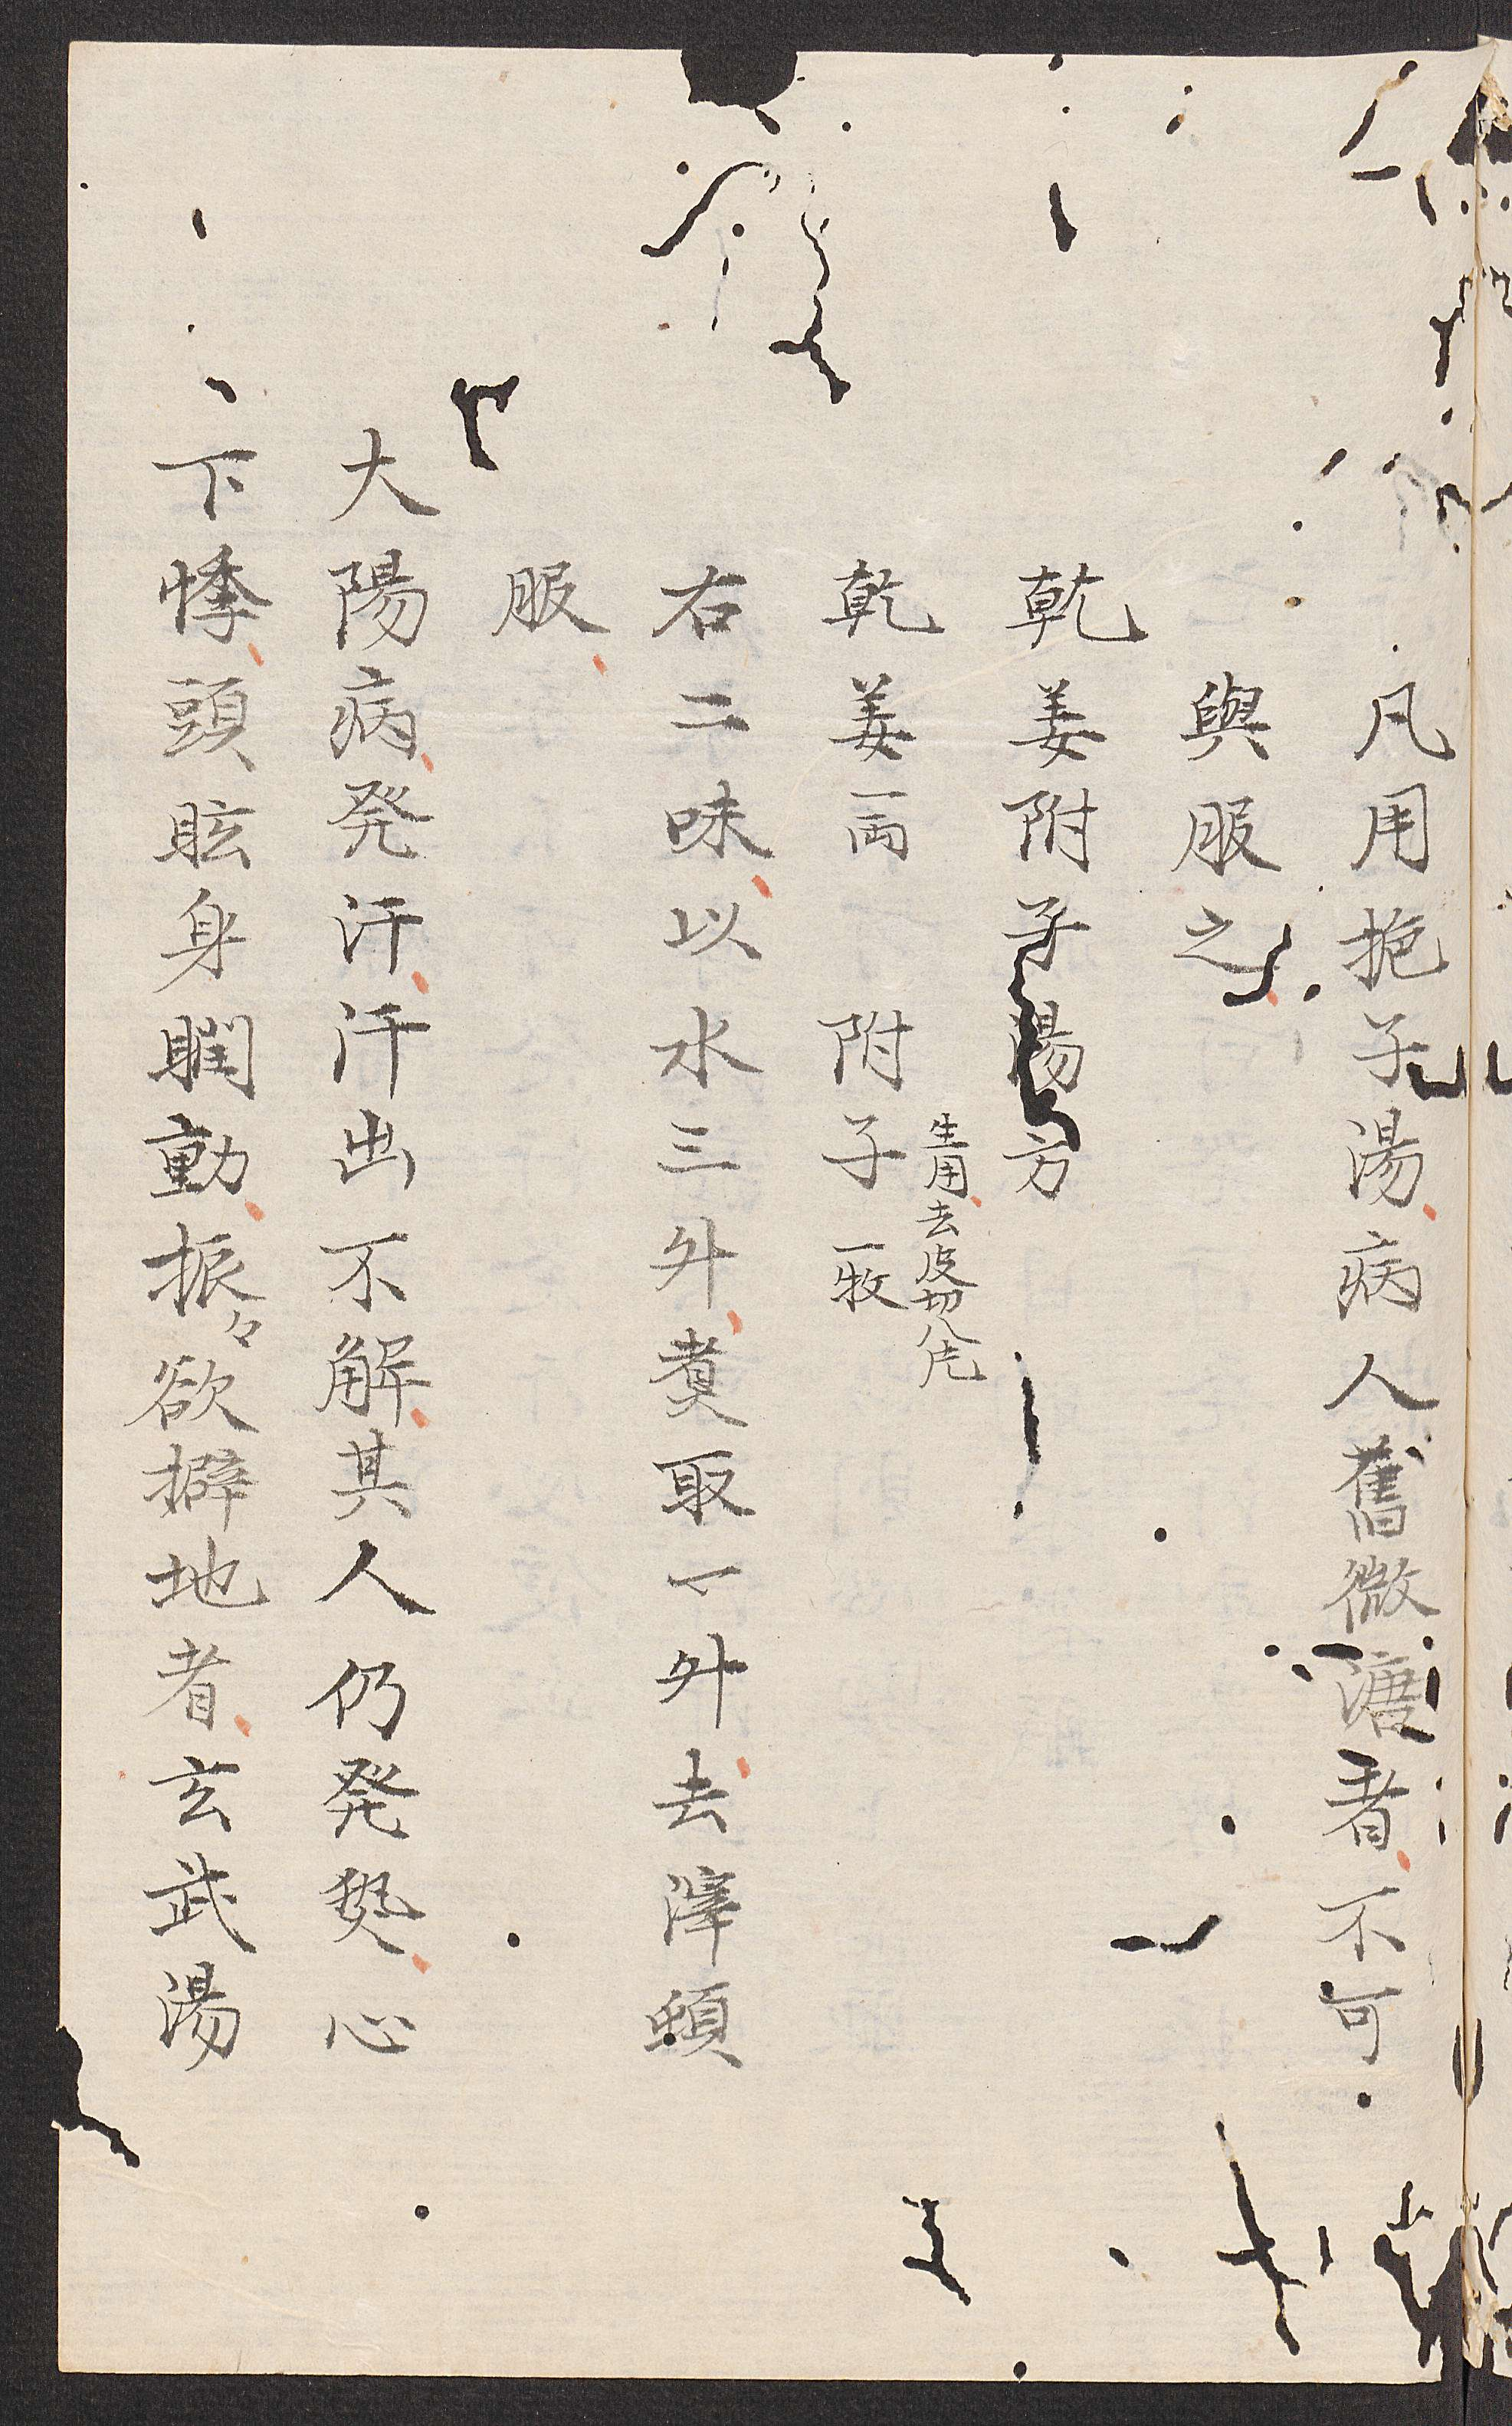 凡用栀子湯病人舊微溏者不可
與服之
乾姜附子湯方
乾姜一両　附子一枚生用去皮切八片
右二味以水三升煑取一升去滓頓
服
大陽病発汗汗出不解其人仍発𤍠心
下悸頭眩身瞤動振々欲擗地者玄武湯